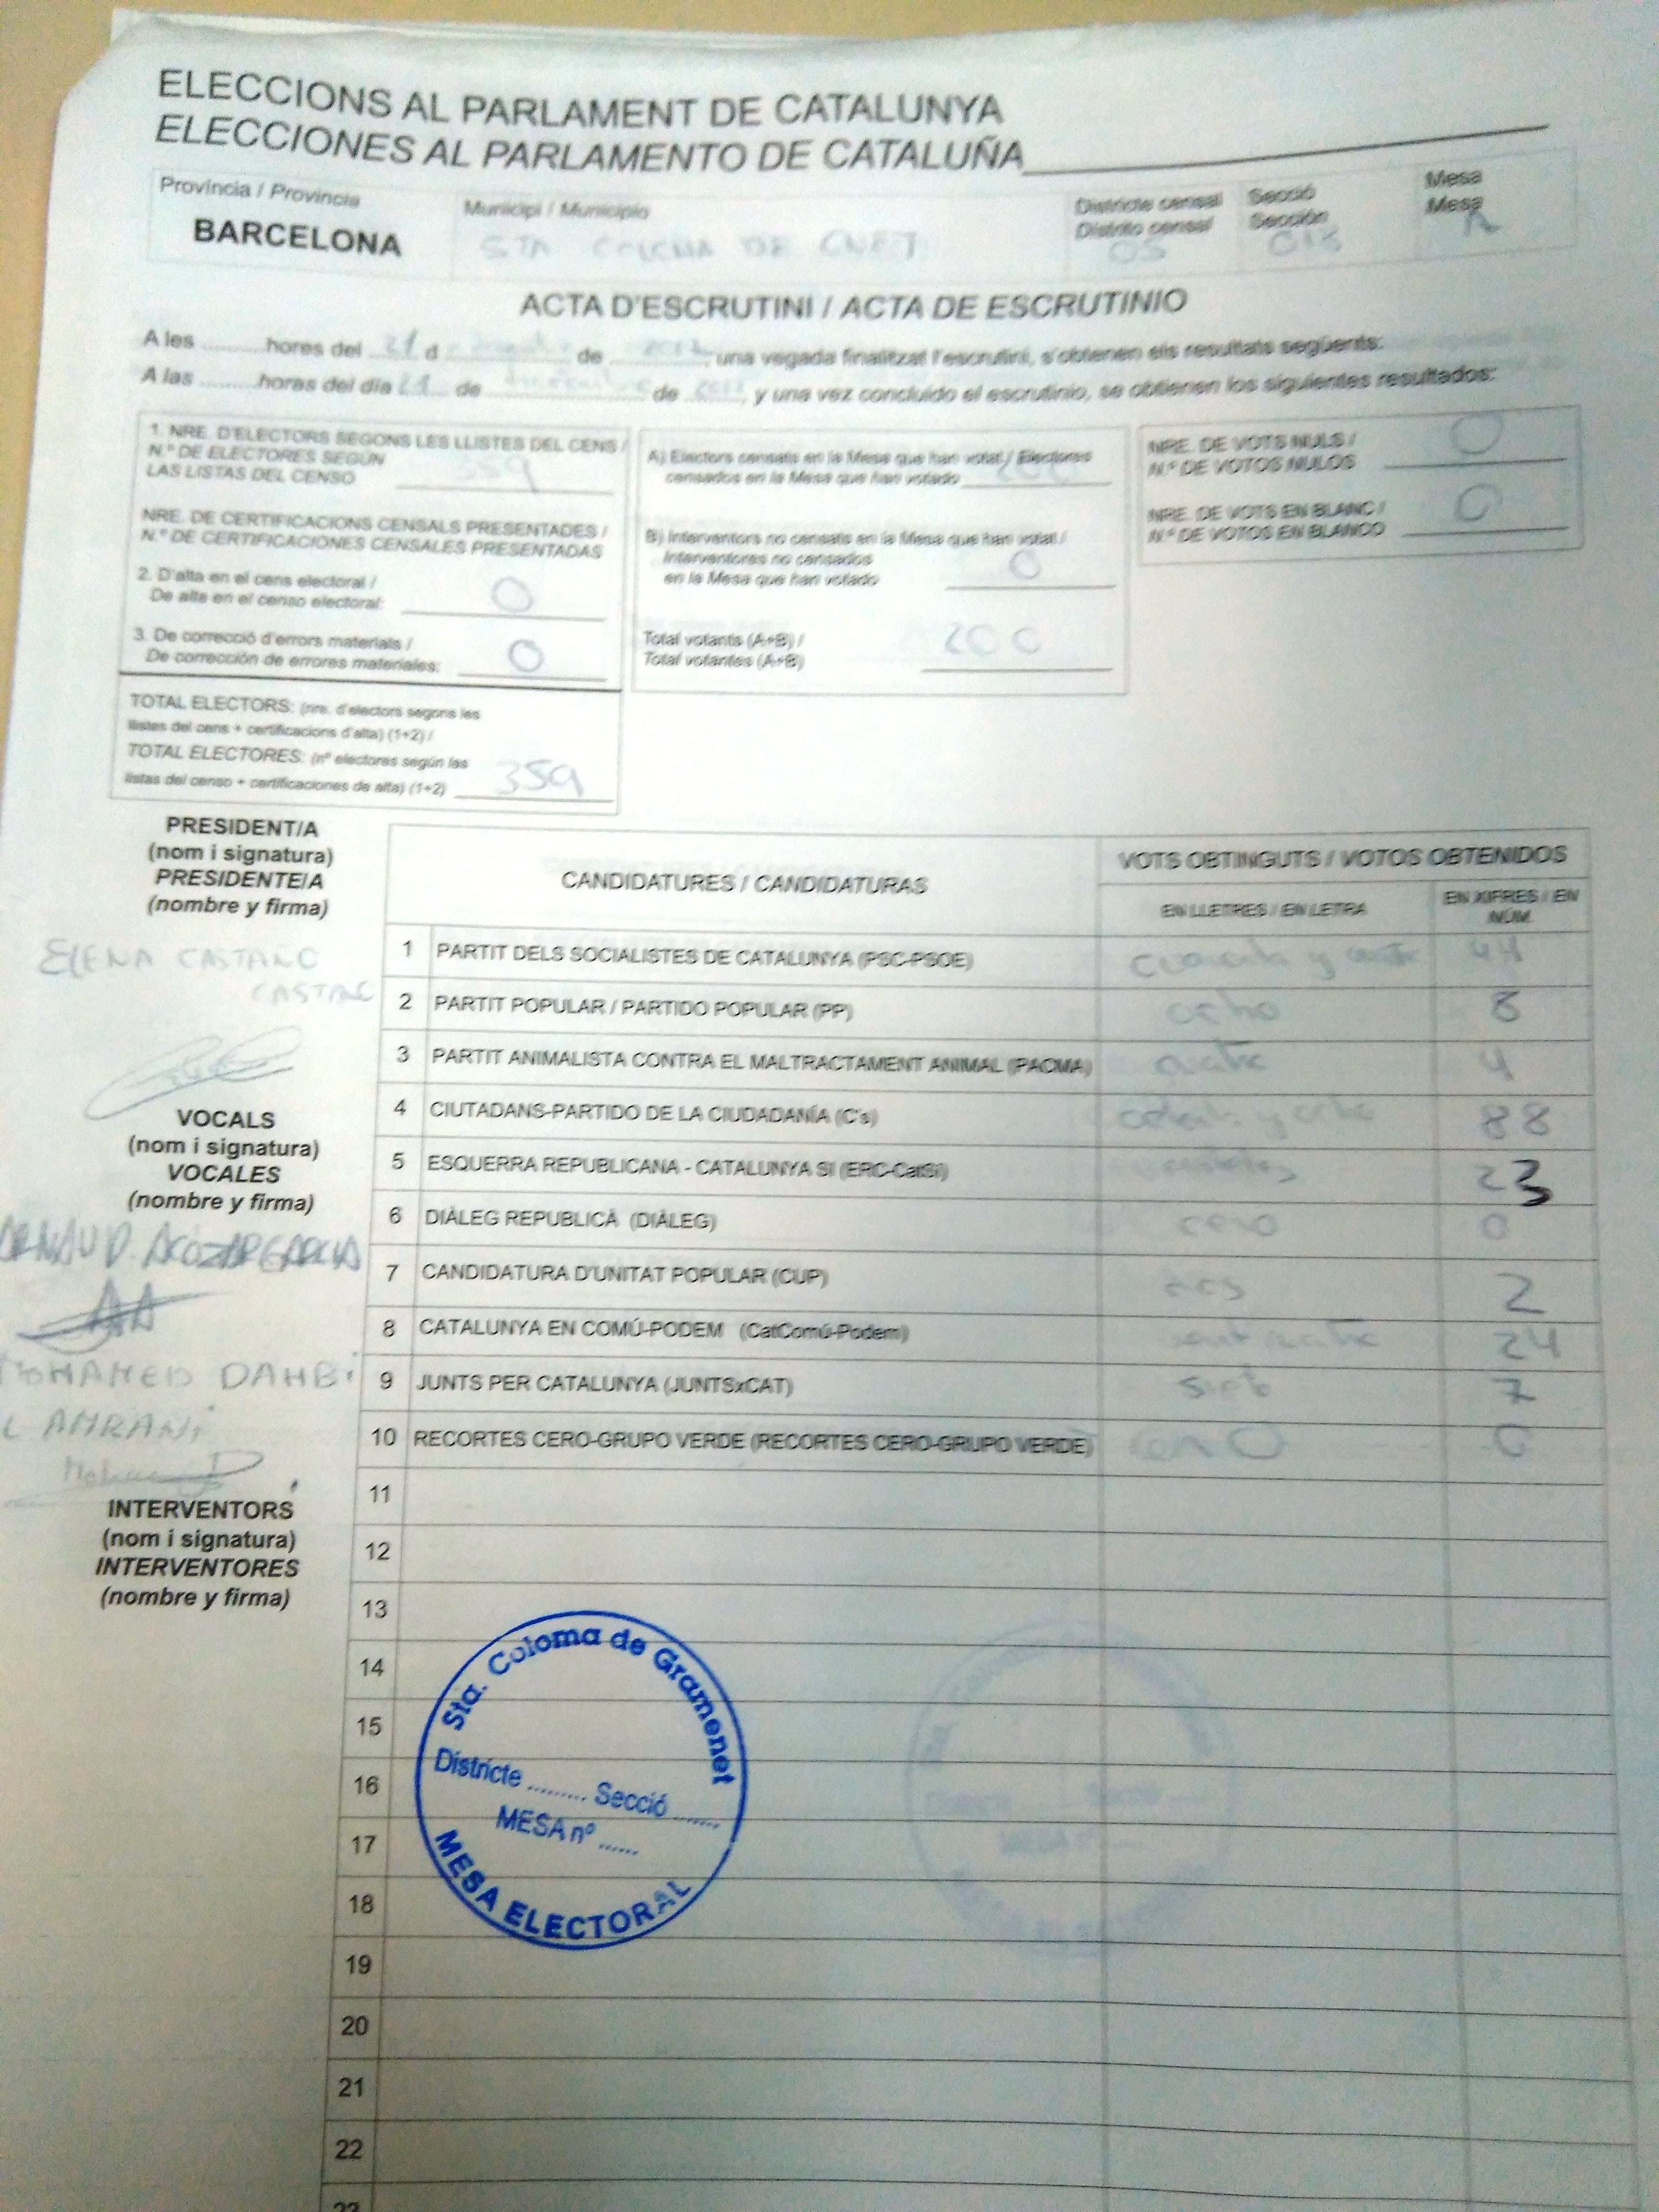 ELECCIONS AL PARLAMENT DE CATALUNYA
ELECCIONES AL PARLAMENTO DE CATALUÑA
Província / Provincia
BARCELONA
Municipi / Municipio
STA COLOMA DE
Districte censal
Distrito censal
05
Secció
Sección
Mesa
Mesa
A
ACTA D'ESCRUTINI / ACTA DE ESCRUTINIO
A les ......... hores del 21 d de una vegada finalitzat l'escrutini, s'obtenen els resultats següents:
A las ......... horas del día 21 de de y una vez concluido el escrutinio, se obtienen los siguientes resultados:
1. NRE. D'ELECTORS SEGONS LES LLISTES DEL CENS /
N.º DE ELECTORES SEGÚN
LAS LISTAS DEL CENSO 359
NRE. DE CERTIFICACIONS CENSALS PRESENTADES /
N.º DE CERTIFICACIONES CENSALES PRESENTADAS
2. D'alta en el cens electoral /
De alta en el censo electoral: 0
3. De correcció d'errors materials /
De corrección de errores materiales: 0
TOTAL ELECTORS: (nre. d'electors segons les
llistes del cens + certificacions d'alta) (1+2) /
TOTAL ELECTORES: (nº electores según las
listas del censo + certificaciones de alta) (1+2) 359
A) Electors censats en la Mesa que han votat / Electores
censados en la Mesa que han votado 200
B) Interventors no censats en la Mesa que han votat /
Interventores no censados
en la Mesa que han votado 0
Total votants (A+B) /
Total votantes (A+B) 200
NRE. DE VOTS NULS /
N.º DE VOTOS NULOS 0
NRE. DE VOTS EN BLANC /
N.º DE VOTOS EN BLANCO 0
PRESIDENT/A
(nom i signatura)
PRESIDENTE/A
(nombre y firma)
ELENA CASTAÑO
CASTAÑO
VOCALS
(nom i signatura)
VOCALES
(nombre y firma)
MOHAMED DAHBI
AMRANI
INTERVENTORS
(nom i signatura)
INTERVENTORES
(nombre y firma)
CANDIDATURES / CANDIDATURAS
VOTS OBTINGUTS / VOTOS OBTENIDOS
EN LLETRES / EN LETRA
EN XIFRES / EN
NÚM.
1 PARTIT DELS SOCIALISTES DE CATALUNYA (PSC-PSOE) cuarenta y cuatro 44
2 PARTIT POPULAR / PARTIDO POPULAR (PP) ocho 8
3 PARTIT ANIMALISTA CONTRA EL MALTRACTAMENT ANIMAL (PACMA) cuatro 4
4 CIUTADANS-PARTIDO DE LA CIUDADANÍA (C's) ochenta y ocho 88
5 ESQUERRA REPUBLICANA - CATALUNYA SÍ (ERC-CatSí) 23
6 DIÀLEG REPUBLICÀ (DIÀLEG) cero 0
7 CANDIDATURA D'UNITAT POPULAR (CUP) dos 2
8 CATALUNYA EN COMÚ-PODEM (CatComú-Podem) 24
9 JUNTS PER CATALUNYA (JUNTSxCAT) siete 7
10 RECORTES CERO-GRUPO VERDE (RECORTES CERO-GRUPO VERDE) cero 0
11
12
13
14
15
16
17
18
19
20
21
22
23
Sta. Coloma de Gramenet
Districte ......... Secció .......
MESA nº ......
MESA ELECTORAL